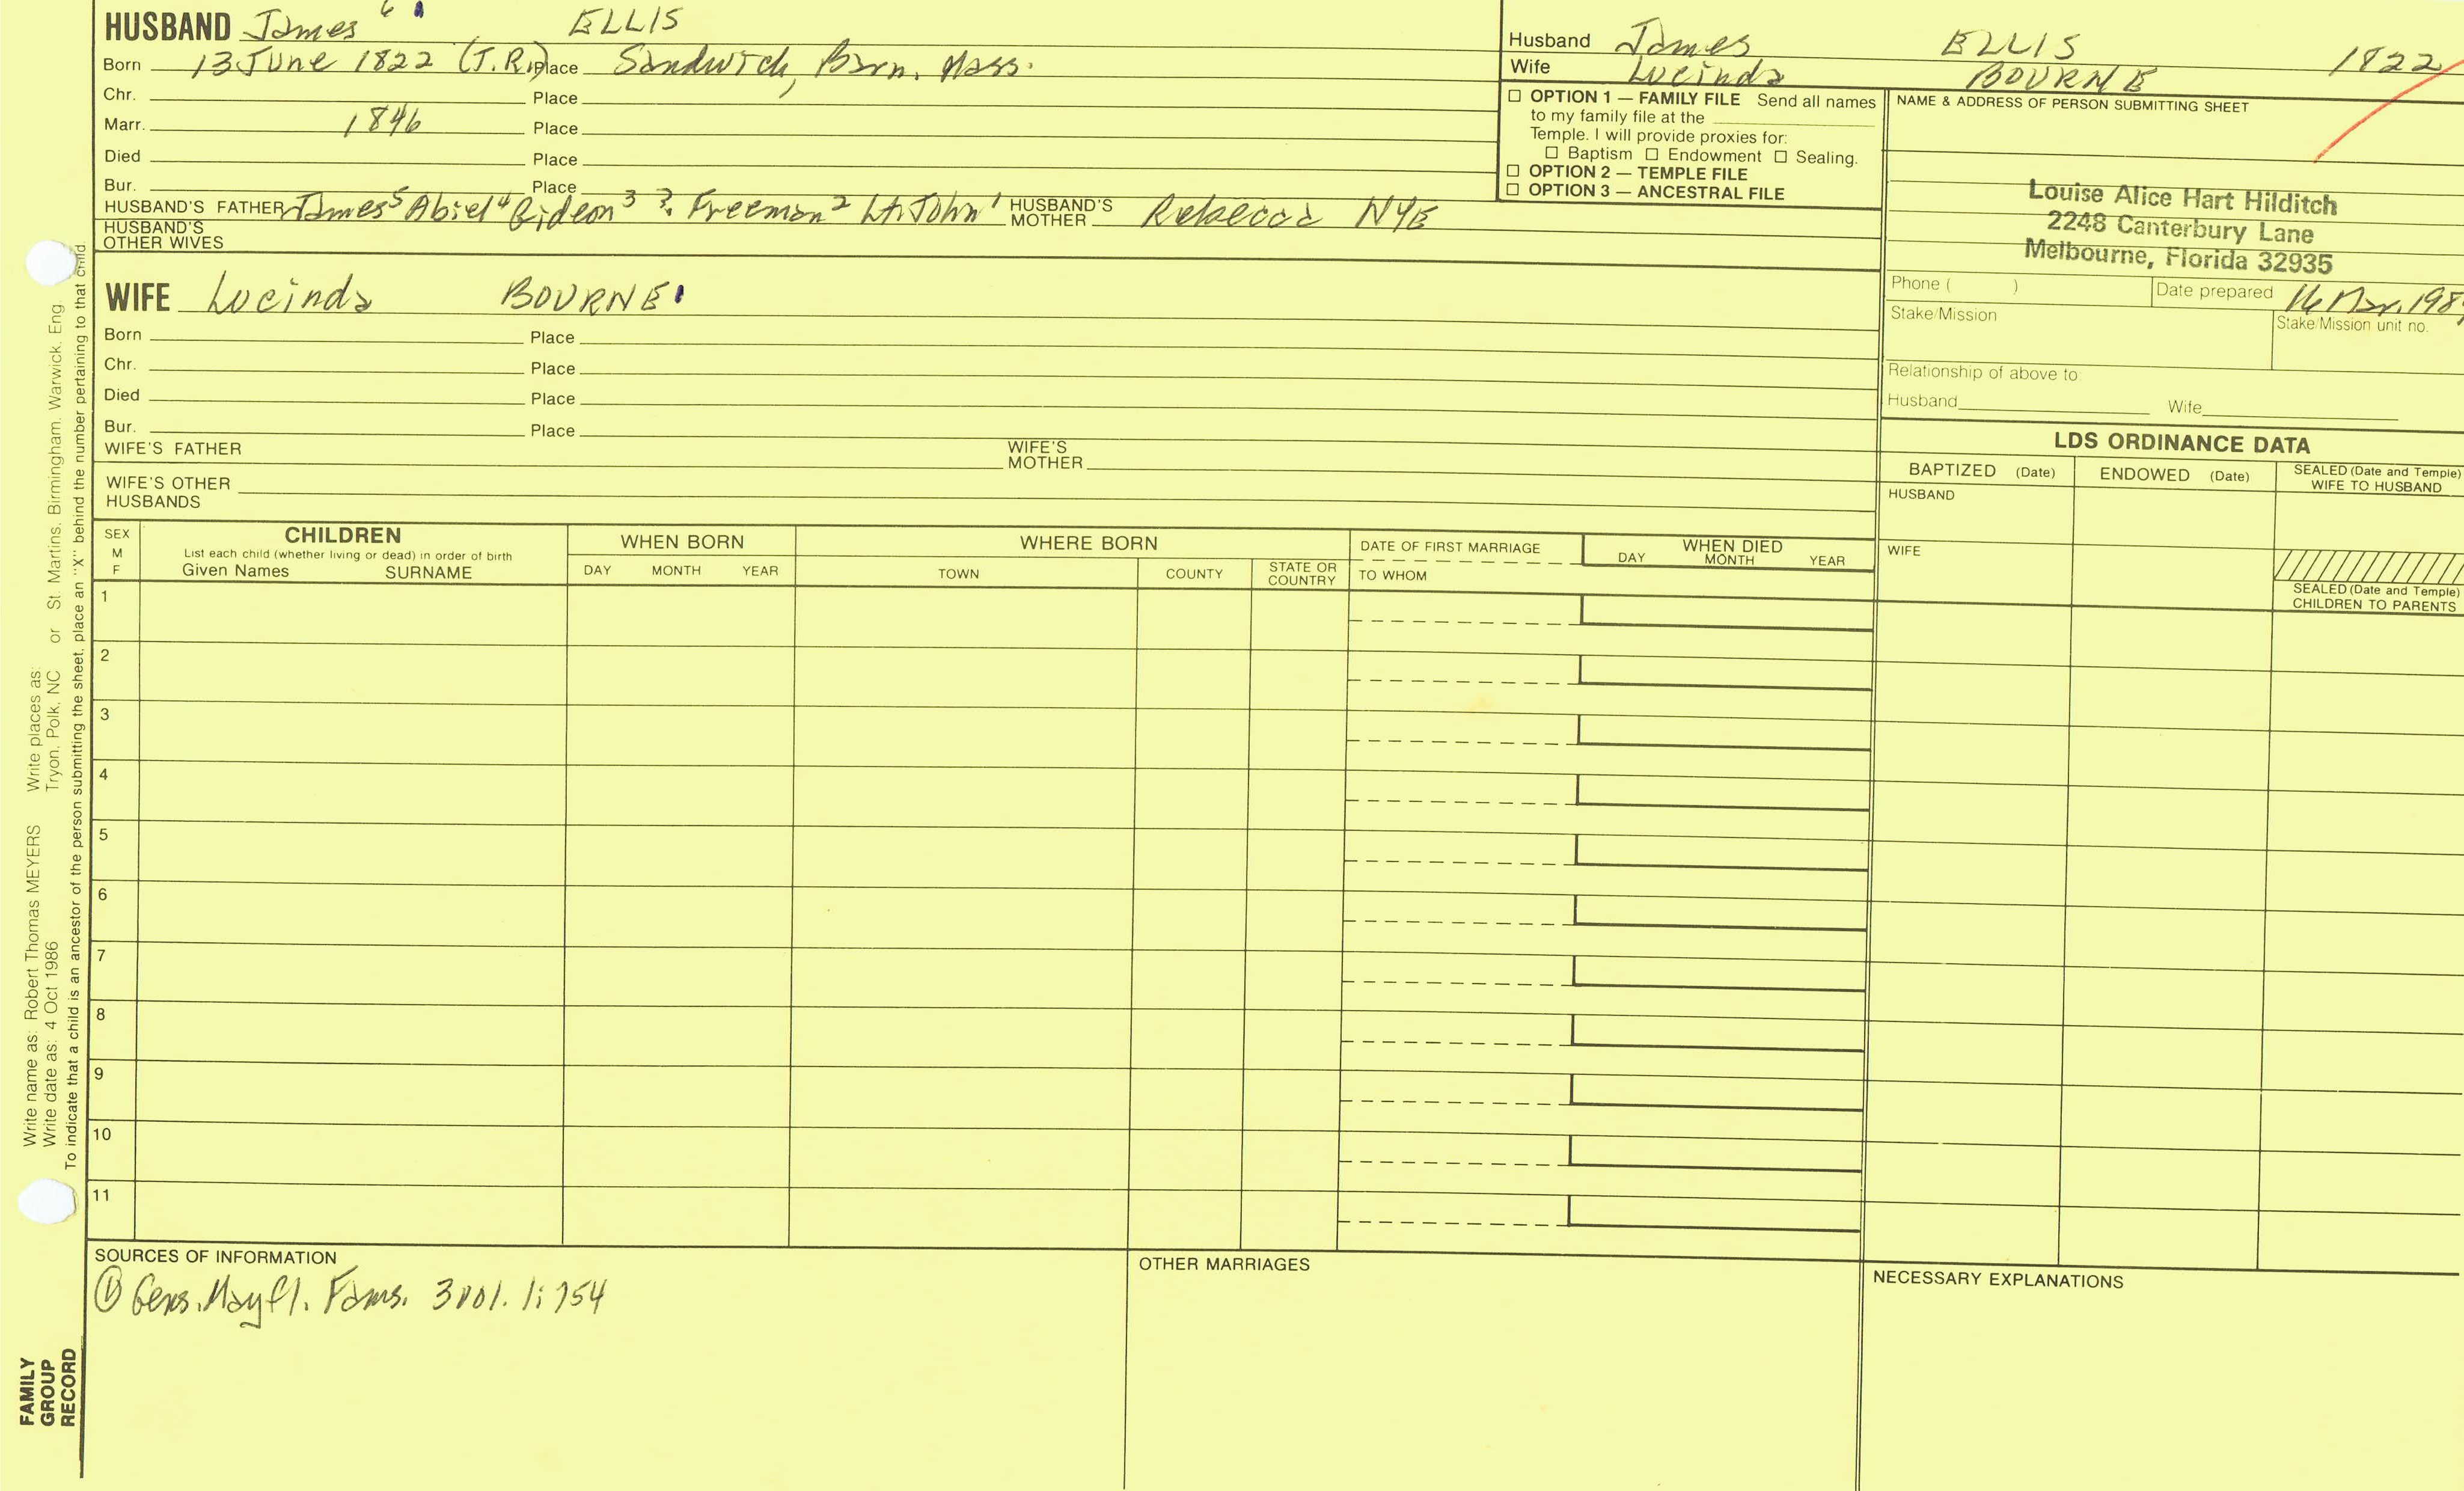 HUSBAND James 6 ELLIS
Born 13 June 1822 (T.R.) Place Sandwich, Barn. Mass.
Chr. Place
Marr. 1846 Place
Died Place
Bur. Place
HUSBAND'S FATHER James5 Abiel4 Gideon3 ? Freeman2 Lt. John1 HUSBAND'S MOTHER Rebecca NYE
HUSBAND'S OTHER WIVES
Husband James ELLIS 1822
Wife Lucinda BOURNE
☐ OPTION 1 — FAMILY FILE Send all names
to my family file at the
Temple. I will provide proxies for:
☐ Baptism ☐ Endowment ☐ Sealing.
☐ OPTION 2 — TEMPLE FILE
☐ OPTION 3 — ANCESTRAL FILE
NAME & ADDRESS OF PERSON SUBMITTING SHEET
Louise Alice Hart Hilditch
2248 Canterbury Lane
Melbourne, Florida 32935
Phone ( ) Date prepared 16 Mar. 198
Stake/Mission Stake/Mission unit no.
Relationship of above to:
Husband Wife
WIFE Lucinda BOURNE
Born Place
Chr. Place
Died Place
Bur. Place
WIFE'S FATHER WIFE'S MOTHER
WIFE'S OTHER HUSBANDS
LDS ORDINANCE DATA
BAPTIZED (Date) ENDOWED (Date) SEALED (Date and Temple) WIFE TO HUSBAND
HUSBAND
WIFE
SEALED (Date and Temple) CHILDREN TO PARENTS
SEX M F
CHILDREN
List each child (whether living or dead) in order of birth
Given Names SURNAME
WHEN BORN
DAY MONTH YEAR
WHERE BORN
TOWN COUNTY STATE OR COUNTRY
DATE OF FIRST MARRIAGE
TO WHOM
WHEN DIED
DAY MONTH YEAR
1
2
3
4
5
6
7
8
9
10
11
SOURCES OF INFORMATION
① Gens. Mayfl. Fams. 3 vol. 1:754
OTHER MARRIAGES
NECESSARY EXPLANATIONS
Write name as: Robert Thomas MEYERS Write places as:
Write date as: 4 Oct 1986 Tryon, Polk, NC or St. Martins, Birmingham, Warwick, Eng.
To indicate that a child is an ancestor of the person submitting the sheet, place an "X" behind the number pertaining to that child
FAMILY
GROUP
RECORD